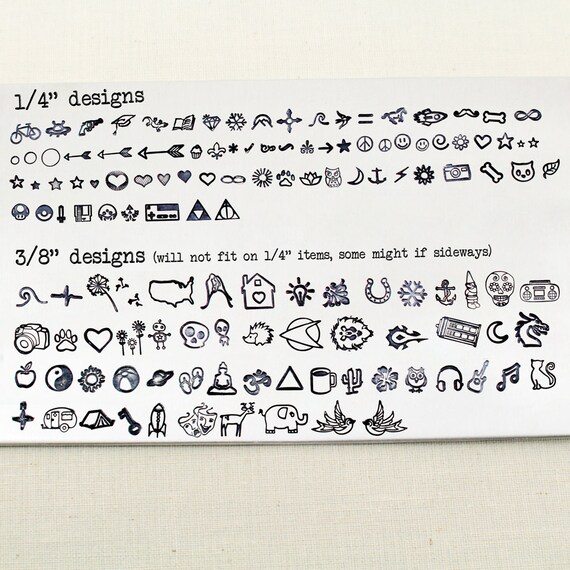 1/4” designs
3/8” designs (will not fit on 1/4” items, some might if sideways)